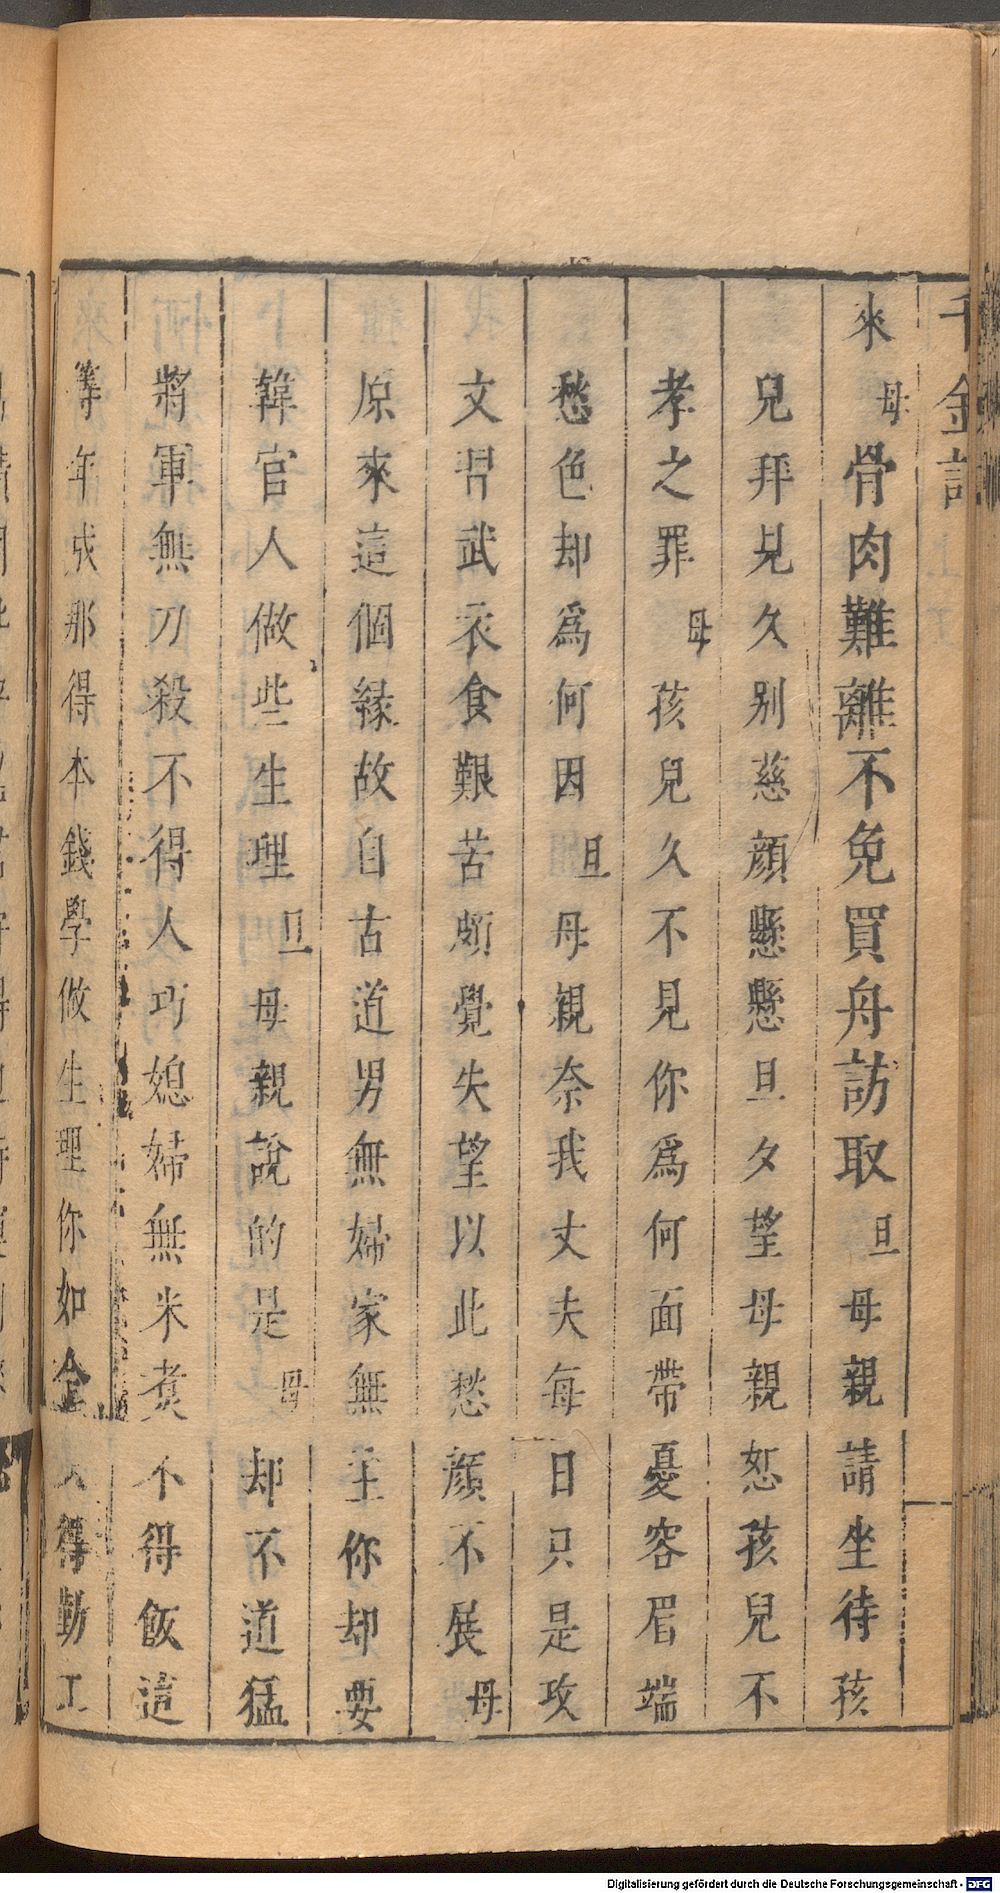 千金記
來 母 骨肉難離不免買舟訪取 旦 母親請坐待孩
兒拜見久别慈顔懸懸旦夕望母親恕孩兒不
孝之罪 母 孩兒久不見你爲何面帶憂容眉端
愁色却爲何因 旦 母親奈我丈夫每日只是攻
文習武衣食艱苦頗覺失望以此愁顔不展 母
原來這個緣故自古道男無婦家無主你却要
韓官人做些生理 旦 母親說的是 母 却不道猛
將軍無刀殺不得人巧媳婦無米煮不得飯這
等年成那得本錢學做生理你如今 得勤工
Digitalisierung gefördert durch die Deutsche Forschungsgemeinschaft - DFG